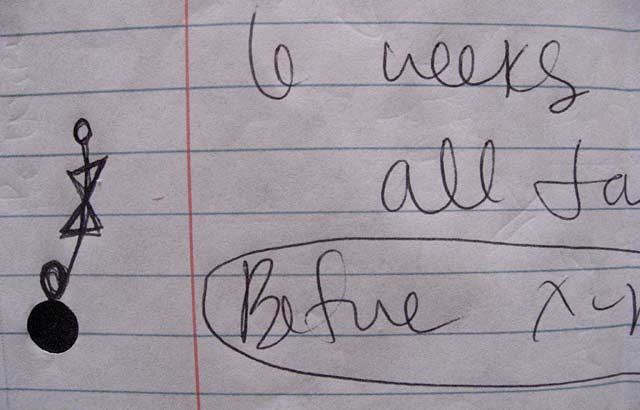 6 weeks
all ta
Before x-